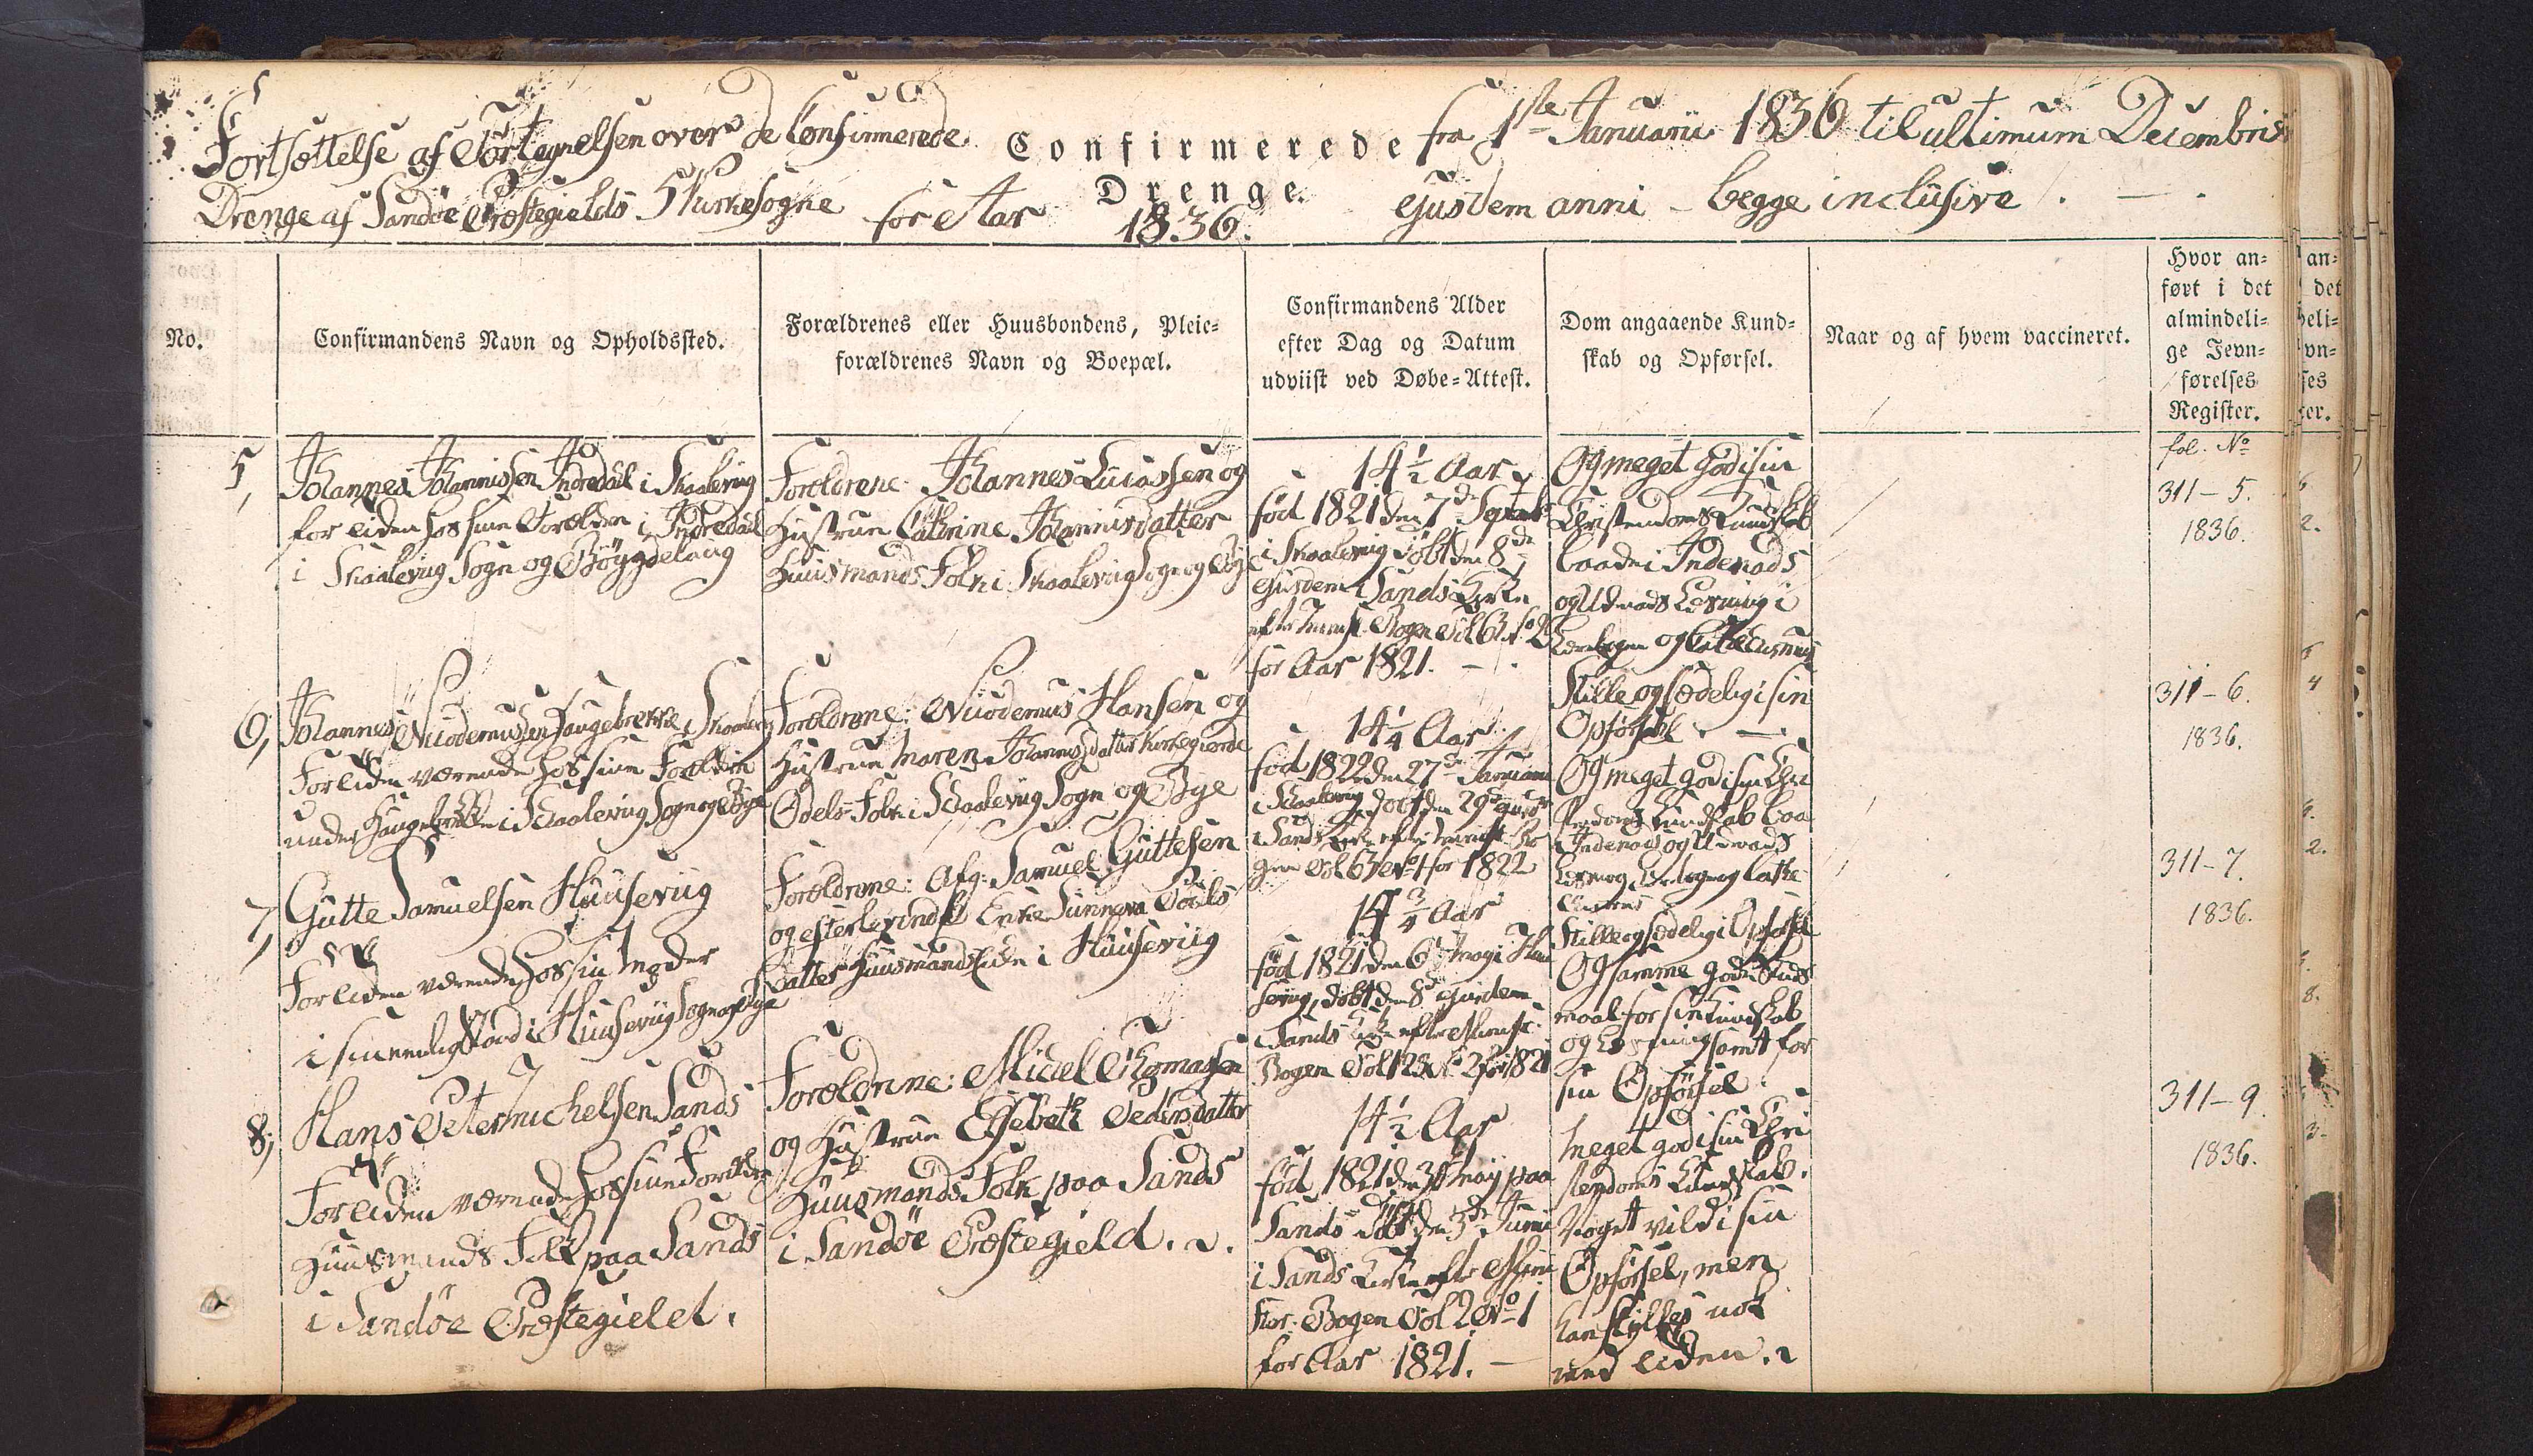 Fortsættelse af Fortegnelsen over de Confirmerede Confirmerede fra 1ste Januarii 1836 til ultimum Decembris
Drenge af Sandöe Præstegields Kirkesogne for Aar Drenge. 1836. ejusdem anni – begge inclusive.
No.
Confirmandens Navn og Opholdssted.
Forældrenes eller Huusbondens, Pleie-
forældrenes Navn og Boepæl.
Confirmandens Alder
efter Dag og Datum
udviist ved Døbe-Attest.
Dom angaaende Kund-
skab og Opførsel.
Naar og af hvem vaccineret.
Hvor an-
ført i det
almindeli-
ge Jevn-
førelses
Register.
5,
Johannes Johannissen Inredahl i Skaaleviig
for tiden hos sine Forældre i Inredahl
i Skaalevug Sogn og Böygdelaug
Forældrene: Johannes Lucassen og
Hustrue Cathrine Johannisdatter
Huusmands Folk i Skaalevug Sogn og Bye
14 1/2 Aar
född 1821 den 7de Septbr
i Skaalevig döbt den 8de
ejusdem i Sands Kirke
for Aar 1821.
Og meget god i sin
Christendoms Kundskab
baade i Indenads
og Udenads Læsning i
Lærebogen og Catechismus
Stille og sædelig i sin
Opførsel
fol. No
311 – 5.
1836.
6,
Johannes Nicodemussen Haugebrekke i Skaalevig
For tiden værende hos sine Forældre
under Haugebrekke i Skaalevug Sogn og Bye
Forældrene: Nicodemus Hansen og
Hustrue Maren Johannisdatter Kirkegierde
Odels-Folk i Skaalevug Sogn og Bye
14 1/4 Aar
född 1822 den 27de Januarii
i Skaalevig döbt den 29de
i Sands Kirke efter
for 1822
Og meget god i sin Chri
stendoms Kundskab baa
Indenads og Udenads
Læsning Lærebog og Cathe
chismus
Stille og sædelig i Opførsel
311 – 6.
1836.
7,
Gutte Samuelsen Huusevug
For tiden værende hos sin Moder
i Huusevug Sogn og Bye
Forældrene: Afg: Samuel Guttesen
og efterlevende Enke Sunneva Joens
datter Huusmands Enke i Huusevug
14 3/4 Aar
född 1821 den 6 May i Huu
sevig, döbt den 8de ejusdem
i Sands Kirke efter
Bogen Fol 123 No 2 for 1821
Og samme gode Skuds
maal for sin Kundskab
og Læsning samt for
sin Opførsel
311 – 7.
1836.
8,
Hans Peter Michelsen Sands
For tiden værende hos sine Forældre
Huusmands Folk paa Sands
i Sandöe Præstegield.
Forældrene: Michel Thomasen
og Hustrue Elsebeth Pedersdatter
Huusmands Folk paa Sands
i Sandöe Præstegield.
14 1/2 Aar
född 1821 den 31 May paa
Sands döbt den 3de Junii
i Sands Kirke efter
Bogen Fol 2 No 1
for Aar 1821.
Meget god i sin Chri
stendoms Kundskab.
Noget vild i sin
Opførsel, men
han skikkes nok
med tiden.
311 – 9.
1836.